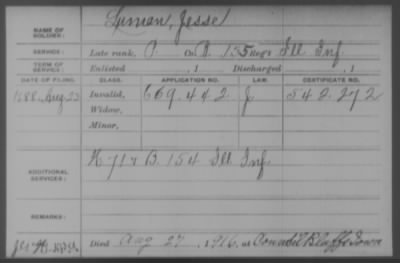 NAME OF SOLDIER: Luman, Jesse
SERVICE: Late rank, P. Co. B. 135 Reg't Ill Inf
TERM OF SERVICE: Enlisted , 1 Discharged , 1
DATE OF FILING. CLASS. APPLICATION NO. LAW. CERTIFICATE NO.
1888. Aug 23 Invalid, 669.442 J. 542.272
Widow,
Minor,
ADDITIONAL SERVICES: B. 154 Ill Inf
REMARKS:
Died Aug 27, 1916, at Council Bluffs Iowa